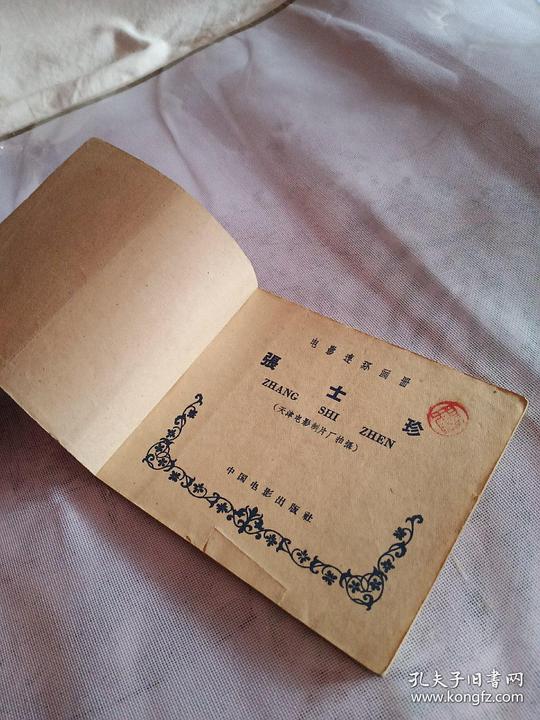 电影连环画册
張士珍
ZHANG SHI ZHEN
(天津电影制片厂拍摄)
中国电影出版社
孔夫子旧书网
www.kongfz.com